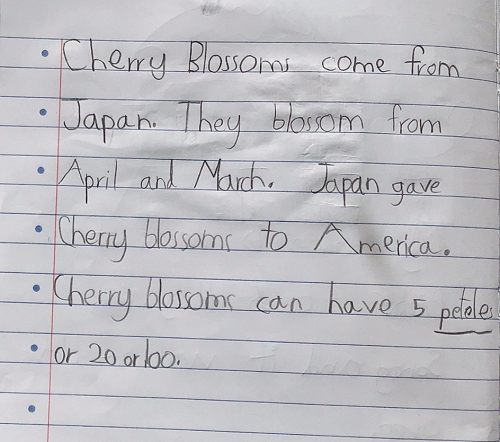 Cherry Blossoms come from
Japan. They blossom from
April and March. Japan gave
Cherry blossoms to America.
Cherry blossoms can have 5 petales
or 20 or 100.